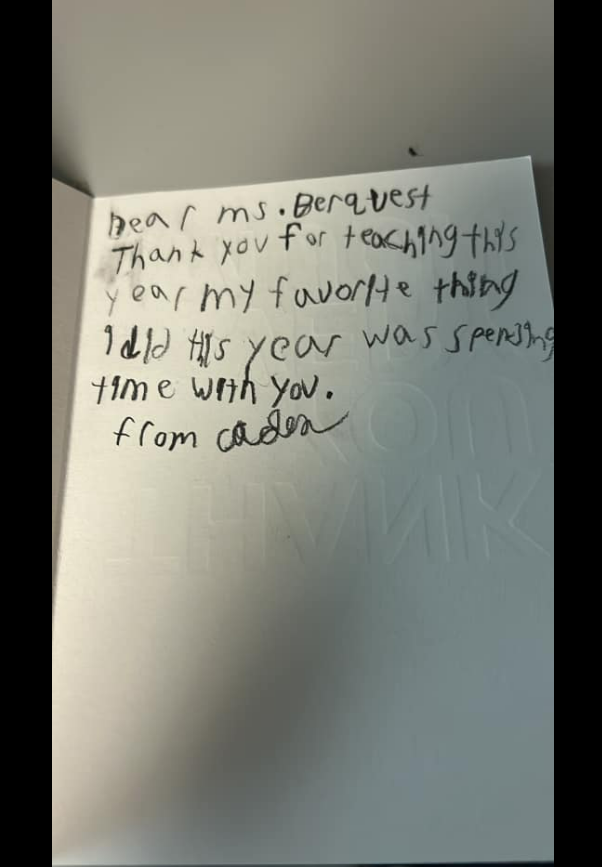 Dear ms. Berquest
Thank you for teaching this
year my favorite thing
I did this year was spending
time with you.
from caden
THANK
YOU